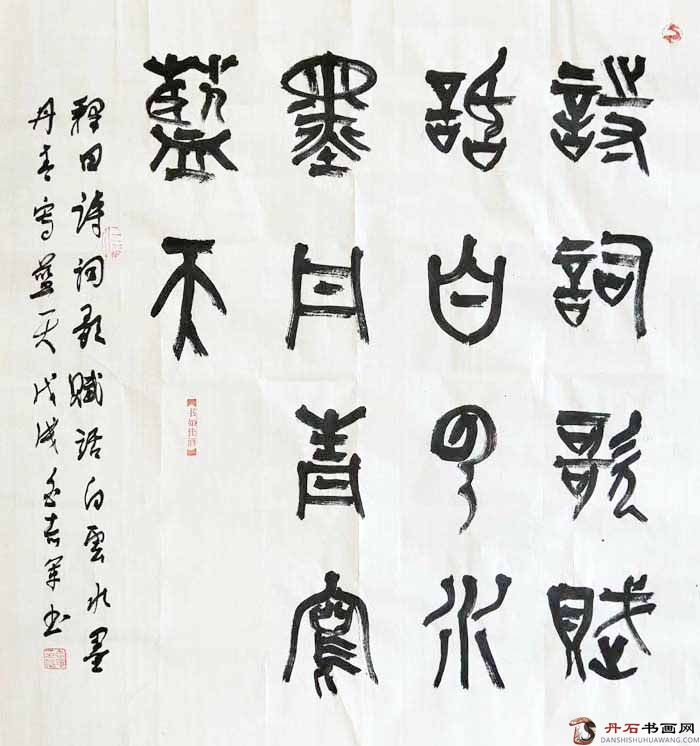 詩詞歌賦
話白云水
墨丹青寫
藍天
釋曰詩詞歌賦話白雲水墨
丹青寫藍天戊戌吉軍书
丹石书画网
DANSHISHUHUAWANG.COM